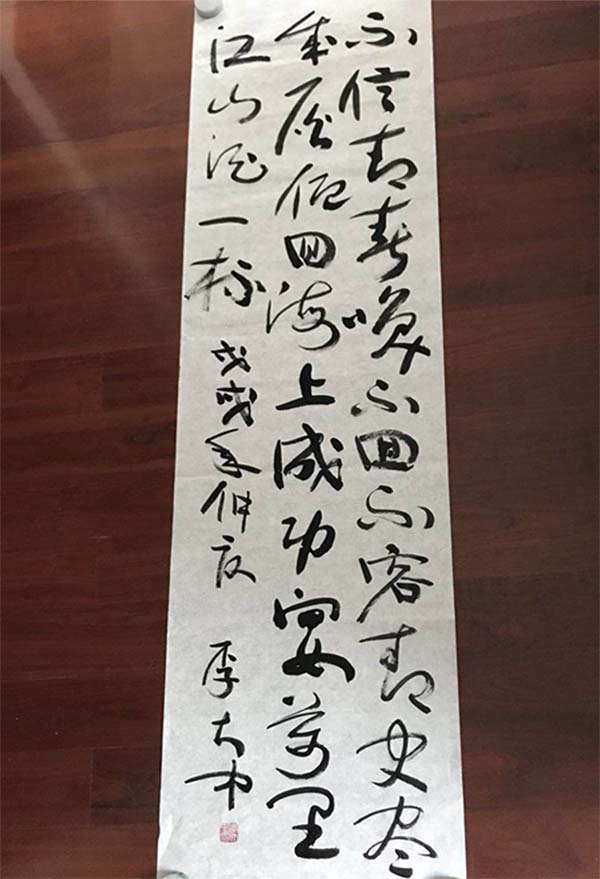 不信青春喚不回不容青史尽
成灰低回海上成功宴萬里
江山酒一杯 戊戌年仲夏 李大中